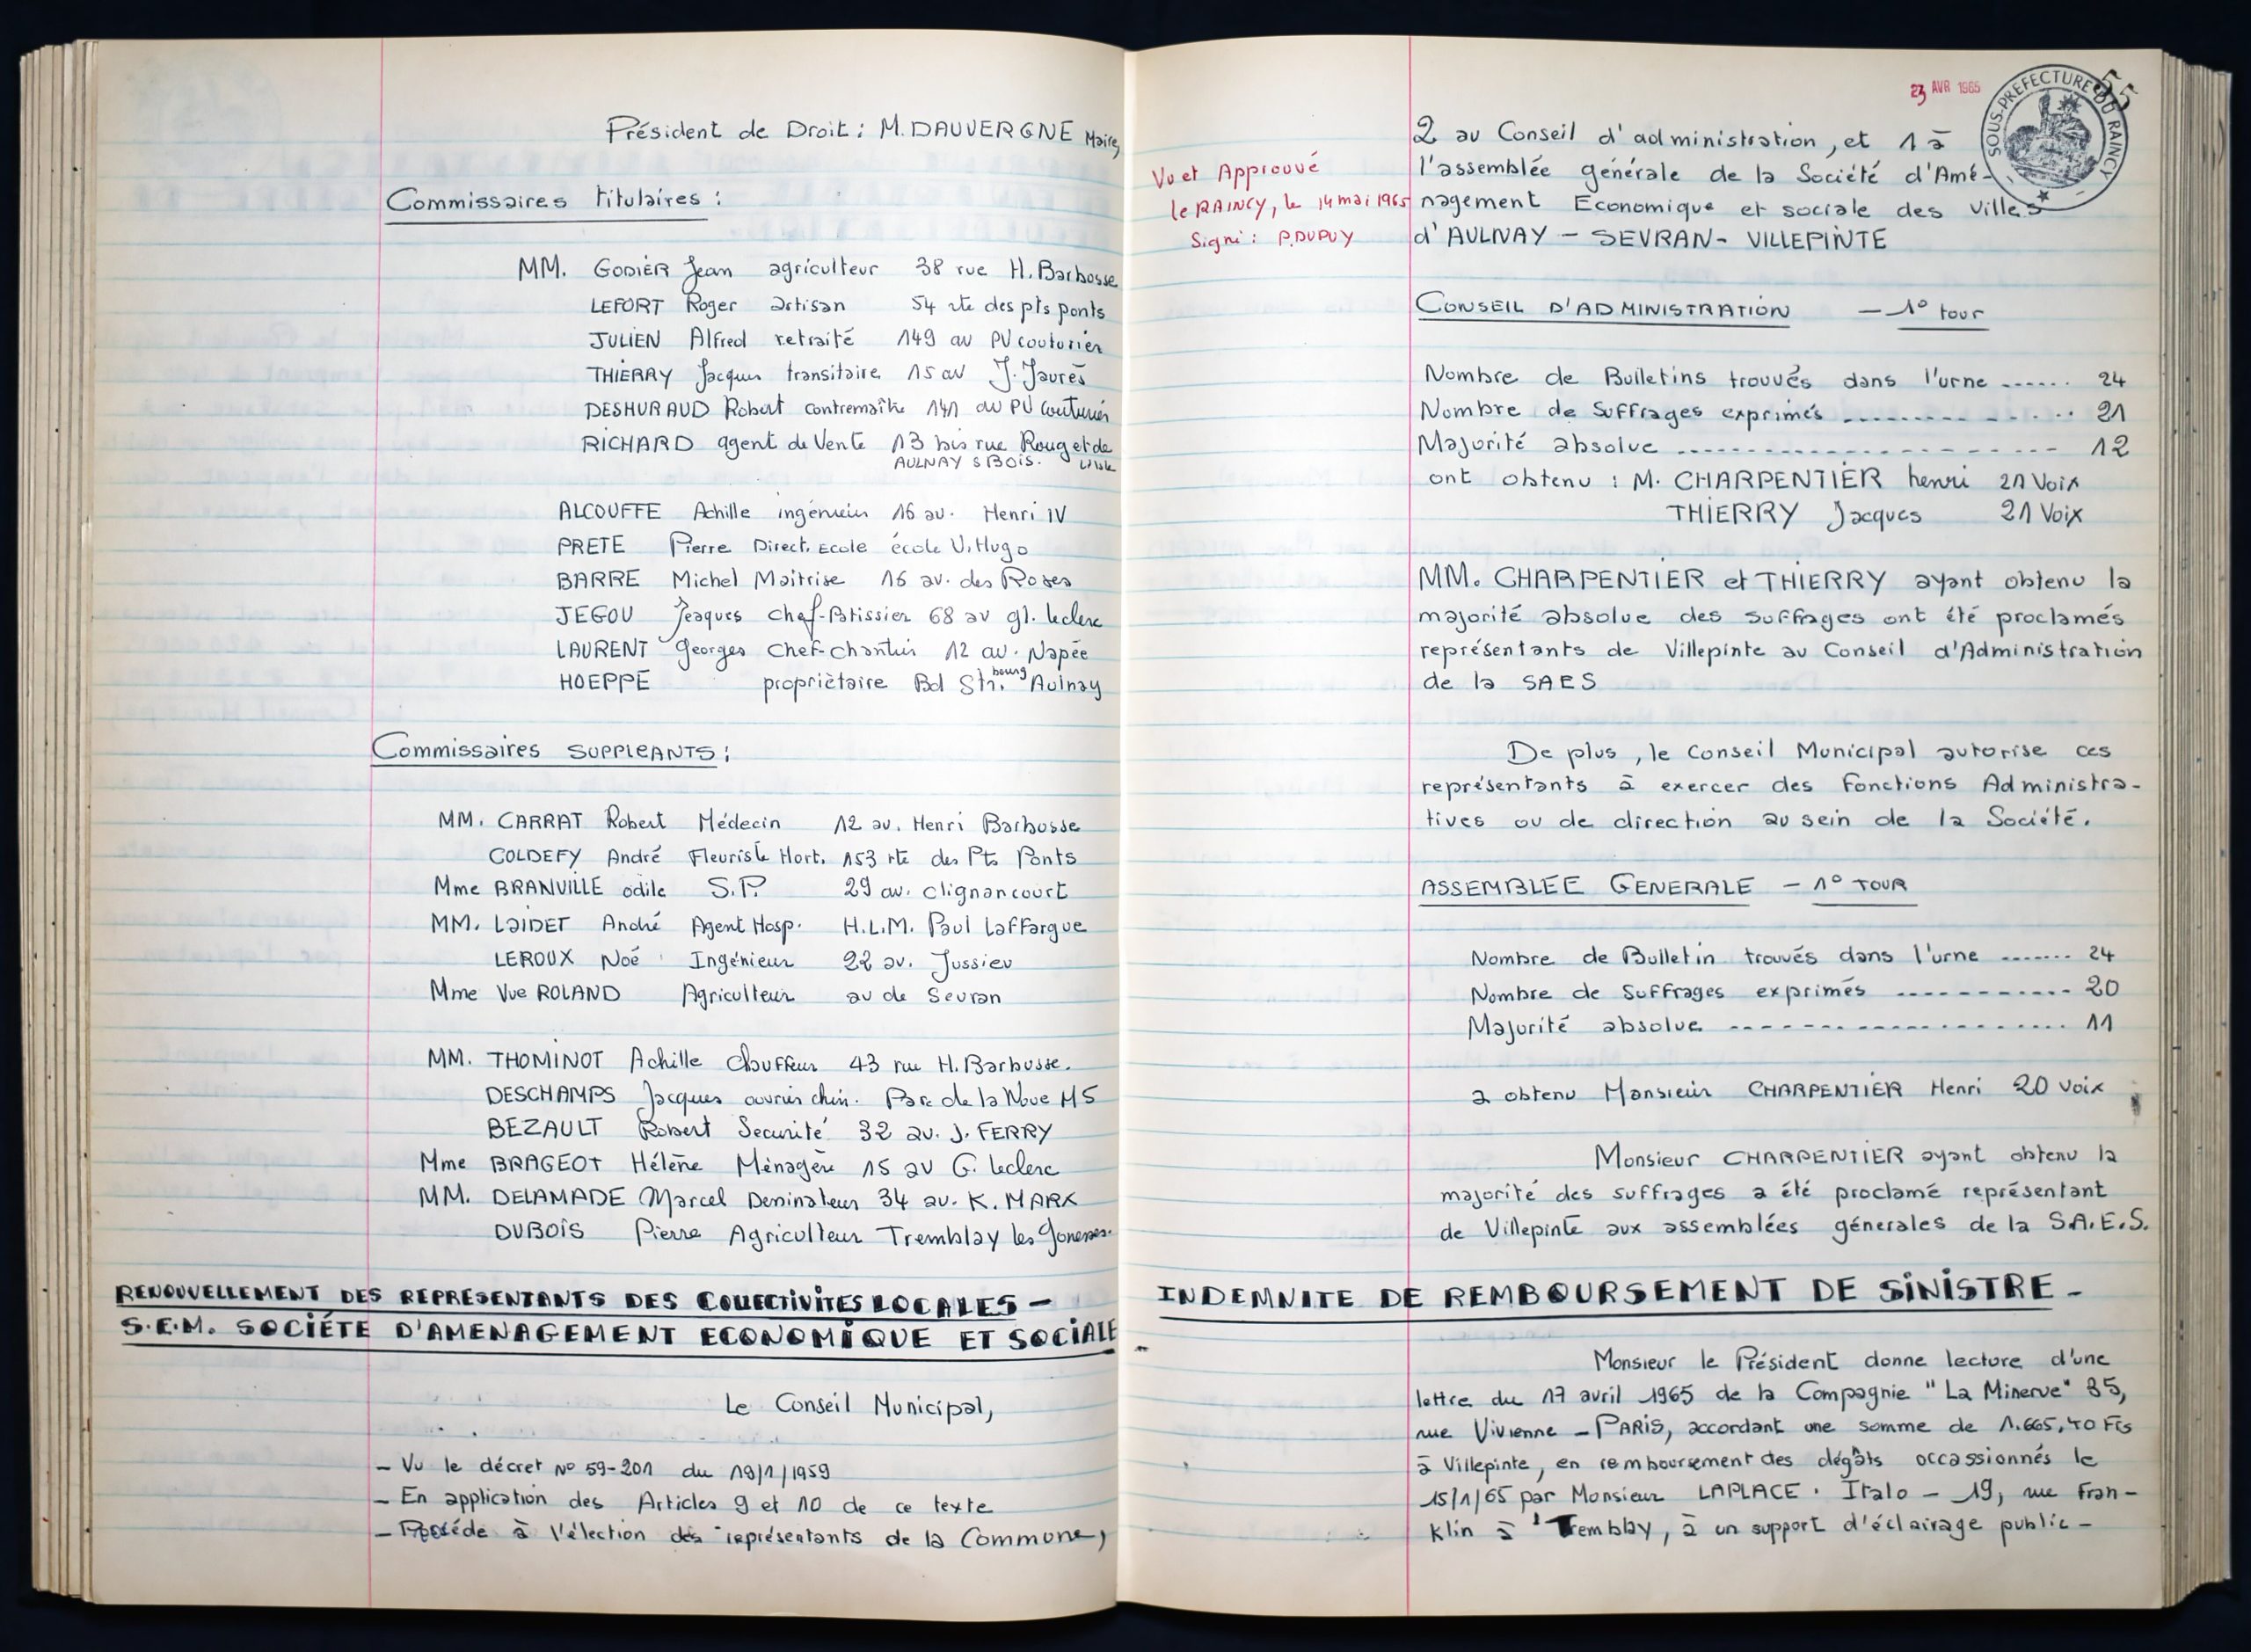 Président de Droit : M. DAUVERGNE Maire,
Commissaires titulaires :
MM. GODIER Jean agriculteur 38 rue H. Barbusse
LEFORT Roger artisan 54 rte des pts ponts
JULIEN Alfred retraité 149 av PV couturier
THIERRY Jacques transitaire 15 av J. Jaurès
DESHURAUD Robert contremaître 141 av PV couturier
RICHARD agent de Vente 13 bis rue Rouget de
AULNAY S BOIS. L'Isle
ALCOUFFE Achille ingénieur 16 av. Henri IV
PRETE Pierre Direct. Ecole école V. Hugo
BARRE Michel Maitrise 16 av. des Roses
JEGOU Jeaques chef-Patissier 68 av gl. leclerc
LAURENT Georges chef-chantier 12 av. Napée
HOEPPE propriètaire Bd Str.bourg Aulnay
Commissaires SUPPLEANTS :
MM. CARRAT Robert Médecin 12 av. Henri Barbusse
COLDEFY André Fleuriste Hort. 153 rte des Pts Ponts
Mme BRANVILLE odile S.P. 29 av. clignancourt
MM. LAIDET André Agent Hosp. H.L.M. Paul Laffargue
LEROUX Noé Ingénieur 22 av. Jussieu
Mme Vve ROLAND Agriculteur av de Sevran
MM. THOMINOT Achille Chauffeur 43 rue H. Barbusse.
DESCHAMPS Jacques ouvrier chim. Parc de la Noue H5
BEZAULT Robert Securité 32 av. J. FERRY
Mme BRAGEOT Hélène Ménagère 15 av G. leclerc
MM. DELAMADE Marcel Deminateur 34 av. K. MARX
DUBOIS Pierre Agriculteur Tremblay les Gonesses.
RENOUVELLEMENT DES REPRESENTANTS DES COLLECTIVITES LOCALES -
S.E.M. SOCIÉTE D'AMENAGEMENT ECONOMIQUE ET SOCIALE -
Le Conseil Municipal,
- Vu le décret N° 59-201 du 19/1/1959
- En application des Articles 9 et 10 de ce texte
- Procéde à l'élection des représentants de la Commune,
23 AVR 1965
55
SOUS-PREFECTURE DU RAINCY
Vu et Approuvé
le RAINCY, le 14 mai 1965
Signé : P. DUPUY
2 au Conseil d'administration, et 1 à
l'assemblée générale de la Société d'Amé-
nagement Economique et sociale des villes
d'AULNAY - SEVRAN - VILLEPINTE
CONSEIL D'ADMINISTRATION - 1° tour
Nombre de Bulletins trouvés dans l'urne ...... 24
Nombre de Suffrages exprimés .............. 21
Majorité absolue .................... 12
ont obtenu : M. CHARPENTIER henri 21 Voix
THIERRY Jacques 21 Voix
MM. CHARPENTIER et THIERRY ayant obtenu la
majorité absolue des suffrages ont été proclamés
représentants de Villepinte au Conseil d'Administration
de la SAES
De plus, le Conseil Municipal autorise ces
représentants à exercer des Fonctions Administra-
tives ou de direction au sein de la Société.
ASSEMBLEE GENERALE - 1° TOUR
Nombre de Bulletin trouvés dans l'urne ....... 24
Nombre de Suffrages exprimés ............ 20
Majorité absolue .................... 11
a obtenu Monsieur CHARPENTIER Henri 20 voix
Monsieur CHARPENTIER ayant obtenu la
majorité des suffrages a été proclamé représentant
de Villepinte aux assemblées génerales de la S.A.E.S.
INDEMNITE DE REMBOURSEMENT DE SINISTRE -
Monsieur le Président donne lecture d'une
lettre du 17 avril 1965 de la Compagnie "La Minerve" 35,
rue Vivienne - PARIS, accordant une somme de 1.665,40 Frs
à Villepinte, en remboursement des dégâts occassionnés le
15/1/65 par Monsieur LAPLACE . Italo - 19, rue Fran-
klin à Tremblay, à un support d'éclairage public -